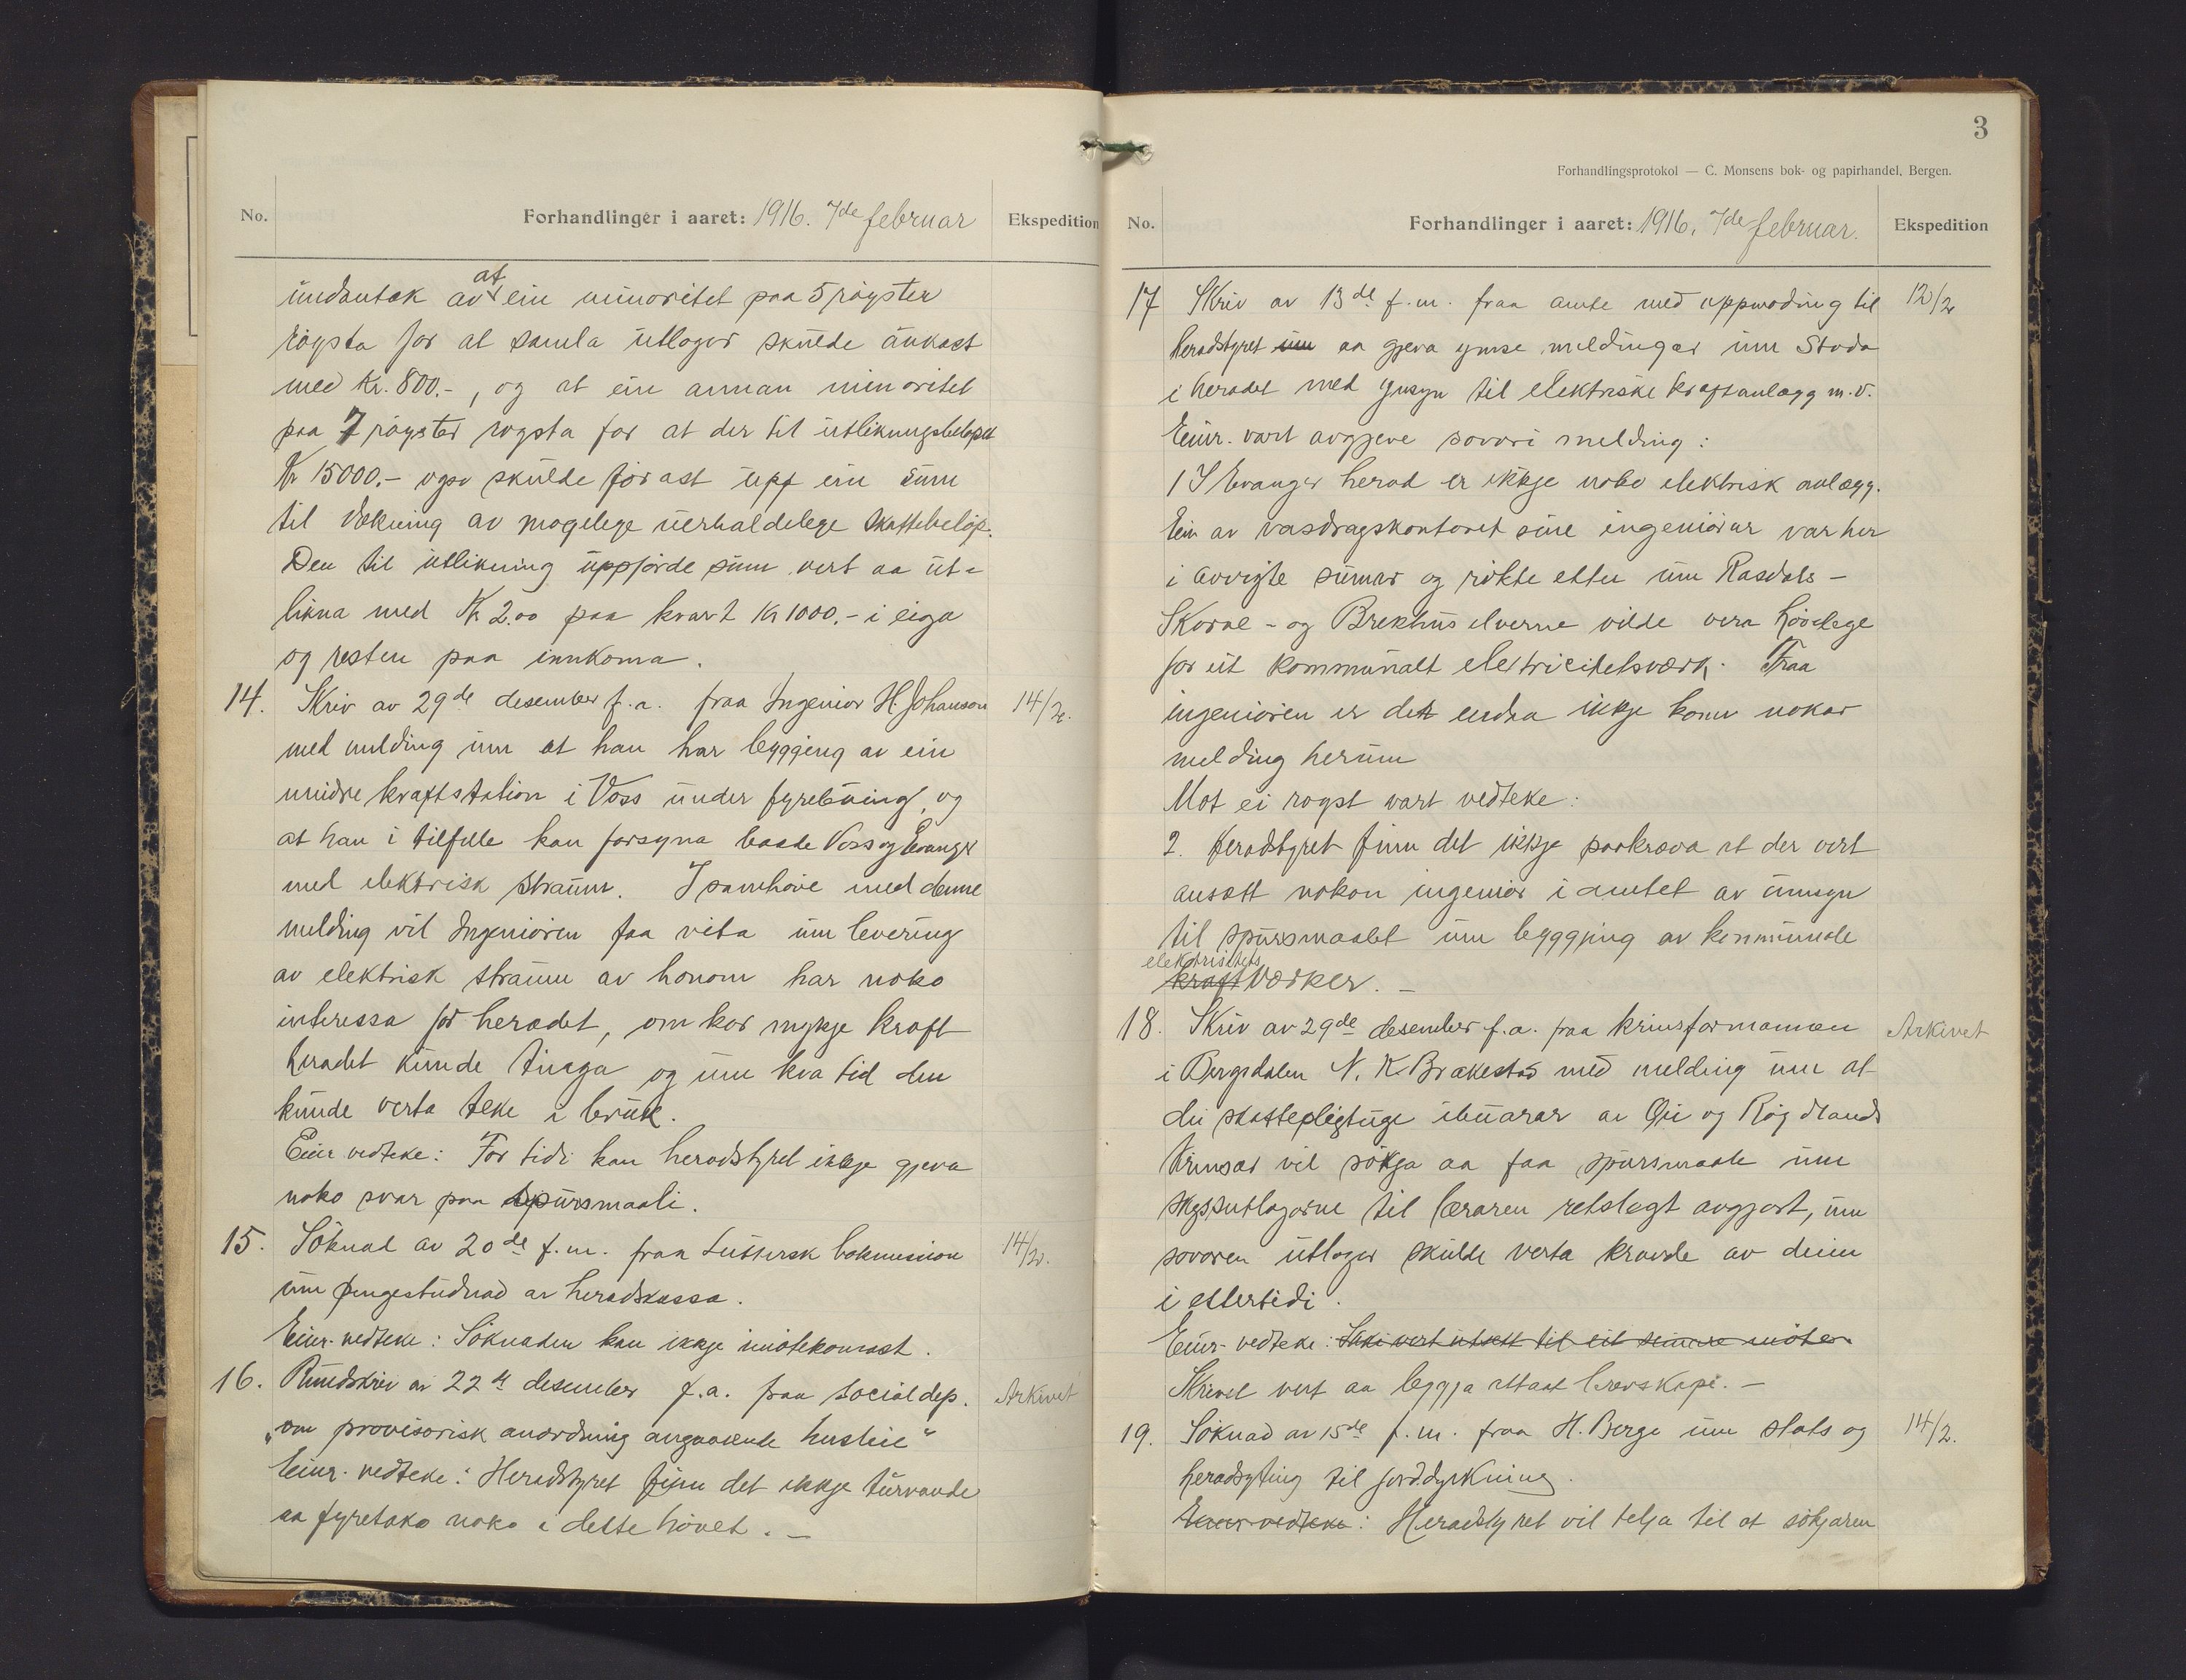 No.
Forhandlinger i aaret: 1916. 7de februar
Ekspedition
undantak av at ein minoritet paa 5 röyster
röysta for at samla utlogor skulde aukast
med Kr. 800.-, og at ein annan minoritet
paa 7 röyster röysta for at der til utlikningsbelöpet
Kr 15000.- ogso skulde förast upp ein sum
til dekning av mogelege uerhaldelege skattebelöp.
Den til utlikning uppförde sum vert aa ut-
likna med Kr 2.00 paa kvart Kr 1000.- i eiga
og resten paa innkoma.
14. Skriv av 29de desember f.a. fraa Ingeniör H. Johanson 14/2.
med melding um at han har byggjing av ein
mindre kraftstation i Voss under fyrebuing, og
at han i tilfelle kan forsyna baade Voss og Evanger
med elektrisk straum. I samhöve med denne
melding vil Ingeniören faa vita um levering
av elektrisk straum av honom har noko
interessa for heradet, om kor mykje kraft
heradet kunde tinga og um kva tid den
kunde verta teke i bruk.
Einr. vedteke: For tidi kan heradstyret ikkje gjeva
noko svar paa spursmaali.
15. Söknad av 20de f.m. fraa Luthersk bokmision 14/2.
um pengestudnad av heradskassa.
Einr. vedteke: Söknaden kan ikkje imötekomast.
16. Rundskriv av 22de desember f.a. fraa Socialdep. Arkivet
„om provisorisk anordning angaaende husleie"
Einr. vedteke: Heradstyret finn det ikkje turvande
aa fyretaka noko i dette hövet. -
3
Forhandlingsprotokol — C. Monsens bok- og papirhandel, Bergen.
No.
Forhandlinger i aaret: 1916. 7de februar.
Ekspedition
17 Skriv av 13de f.m. fraa amte med uppmoding til 12/2
heradstyret um aa gjeva ymse meldingar um Stoda
i heradet med ynsyn til elektriske kraftanlægg m.v.
Einr. vart avgjeve sovori melding:
1 I Evanger herad er ikkje noko elektrisk anlægg.
Ein av vasdragskontoret sine ingeniörar var her
i avvigte sumar og rökte etter um Rasdals-
Skorve- og Brekhus elverne vilde vera hövelege
for eit kommunalt electricitetsværk. Fraa
ingeniören er det endaa ikkje kome nokor
melding herum
Mot ei royst vart vedteke:
2. Heradstyret finn det ikkje paakræva at der vert
ansett nokon ingeniör i amtet av umsyn
til spursmaalet um byggjing av kommunale
elektrisitets
kraft værker. -
18. Skriv av 29de desember f.a. fraa krinsformannen Arkivet
i Bergsdalen N. K. Brækestad med melding um at
dei skattepligtuge ibuarar av Öii og Rögdlands
krinsar vil sökja aa faa spursmaale um
skyssutlogorne til læraren retslegt avgjort, um
sovoren utlogor skulde verta kravde av deim
i ettertidi.
Einr. vedteke: Saki vert utsett til eit seinare möte.
Skrivet vert aa leggja attaat brevskapi. -
19. Söknad av 15de f.m. fraa H. Berge um stats og 14/2.
heradsyting til jorddyrkning.
Einer vedteke: Heradstyret vil telja til at sökjaren